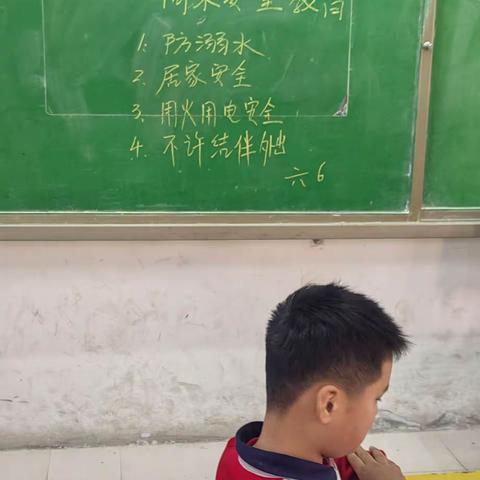 周末安全教育
1. 防溺水
2. 居家安全
3. 用火用电安全
4. 不许结伴外出
六6